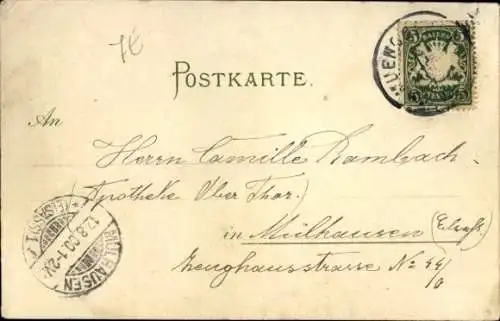 7€
BAYERN
5 5
MUENC
POSTKARTE.
An
Herrn Camille Rambach
(Apotheke Ober Thor.)
in Mülhausen (Elsass)
Zeughausstrasse No 44/0
MÜLHAUSEN
12.8.00.1-2N.
(ELSASS) 1